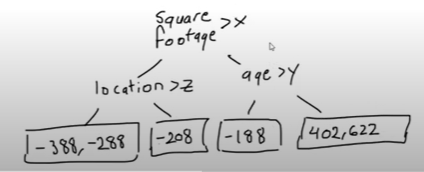 Square
footage >X
location >Z
age >Y
-388, -288
-208
-188
402, 622